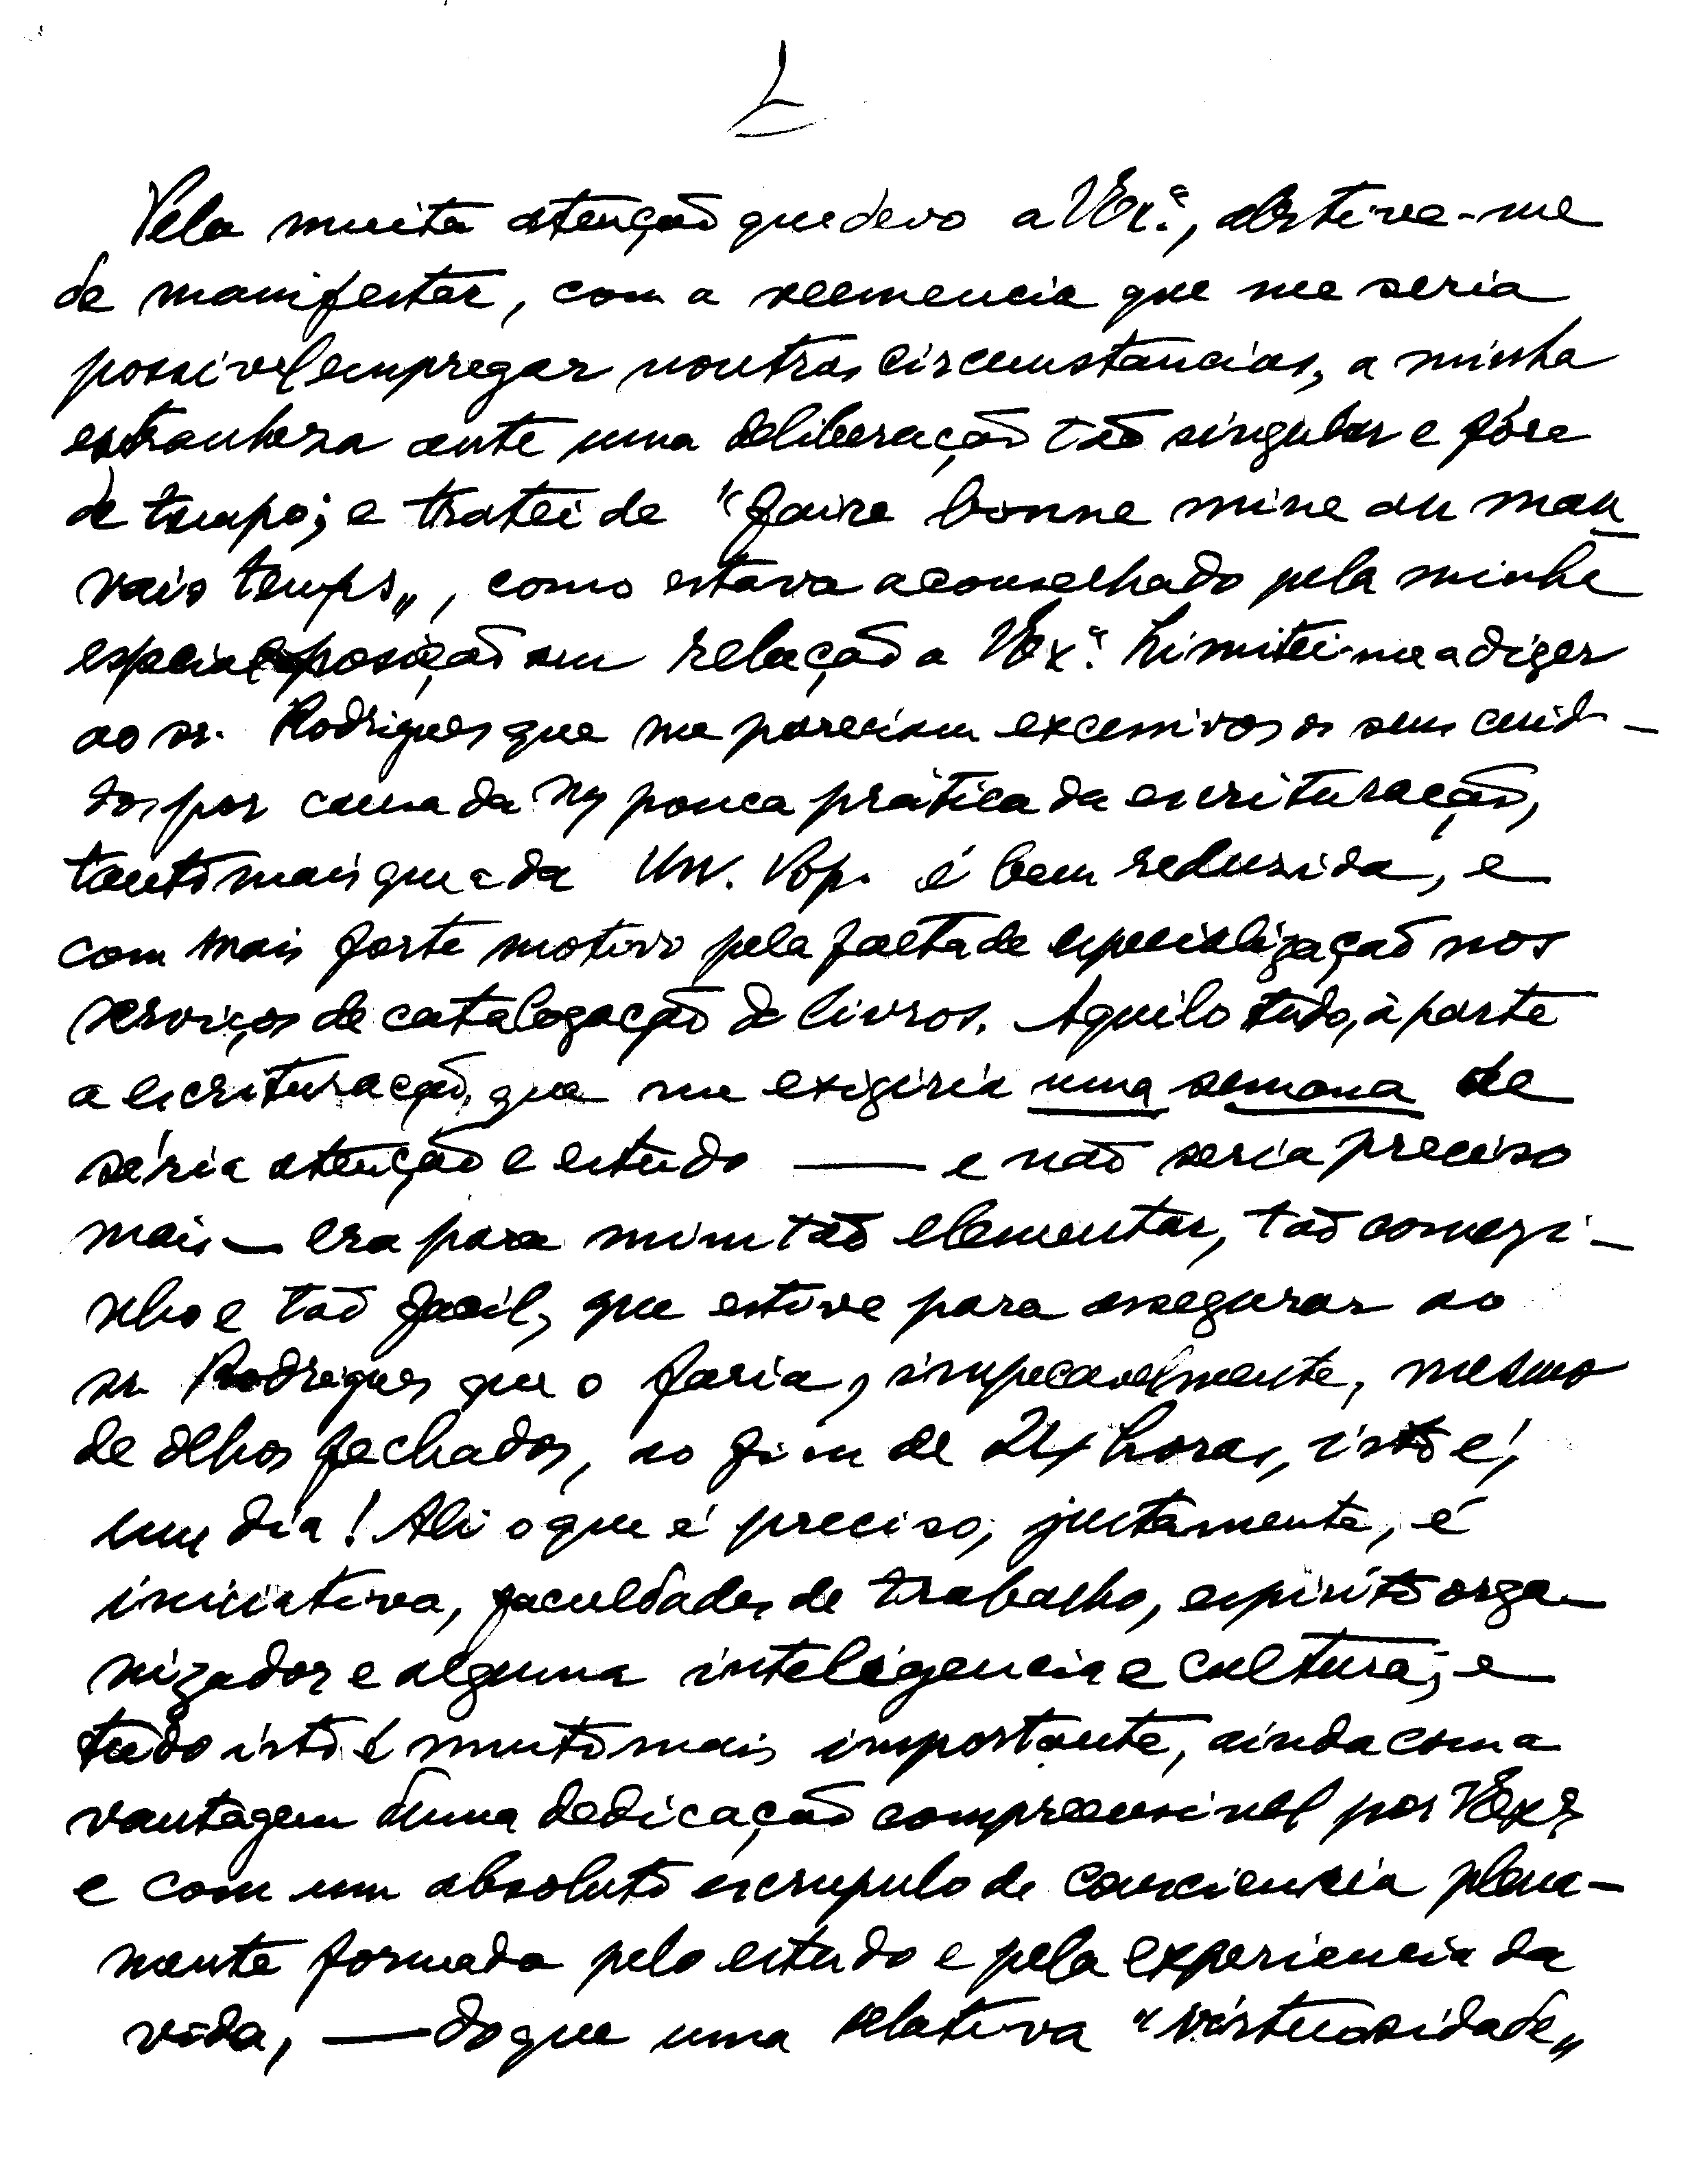 Pela muita atenção que devo a V. Ex.ª, abstive-me
de manifestar, com a veemencia que me seria
possivel empregar noutras circumstancias, a minha
estranheza ante uma deliberação tão singular e fóra
de tempo; e tratei de "faire bonne mine au mau
vais temps", como estava aconselhado pela minha
especial posição em relação a V. Ex.ª Limitei-me a dizer
ao sr. Rodrigues que me pareciam excessivos os seus cuid-
dos por causa da pouca prática da escrituração,
tanto mais que a da Un. Pop. é bem reduzida, e
com mais forte motivo pela falta de especialização nos
serviços de catalogação de livros. Aquilo tudo, à parte
a escrituração, que me exigiria uma semana de
séria atenção e estudo — e não seria preciso
mais — era para mim tão elementar, tão comezi-
nho e tão facil, que estive para assegurar ao
sr. Rodrigues que o faria, impecavelmente, mesmo
de olhos fechados, ao fim de 24 horas, isto é,
um dia! Ali o que é preciso, justamente, é
iniciativa, faculdades de trabalho, espirito orga-
nizador e alguma inteligencia e cultura; e
tudo isto é muito mais importante, ainda com a
vantagem duma dedicação compreensivel por V. Ex.ª
e com um absoluto escrupulo de consciencia plena-
mente formada pelo estudo e pela experiencia da
vida, — do que uma relativa "virtuosidade"